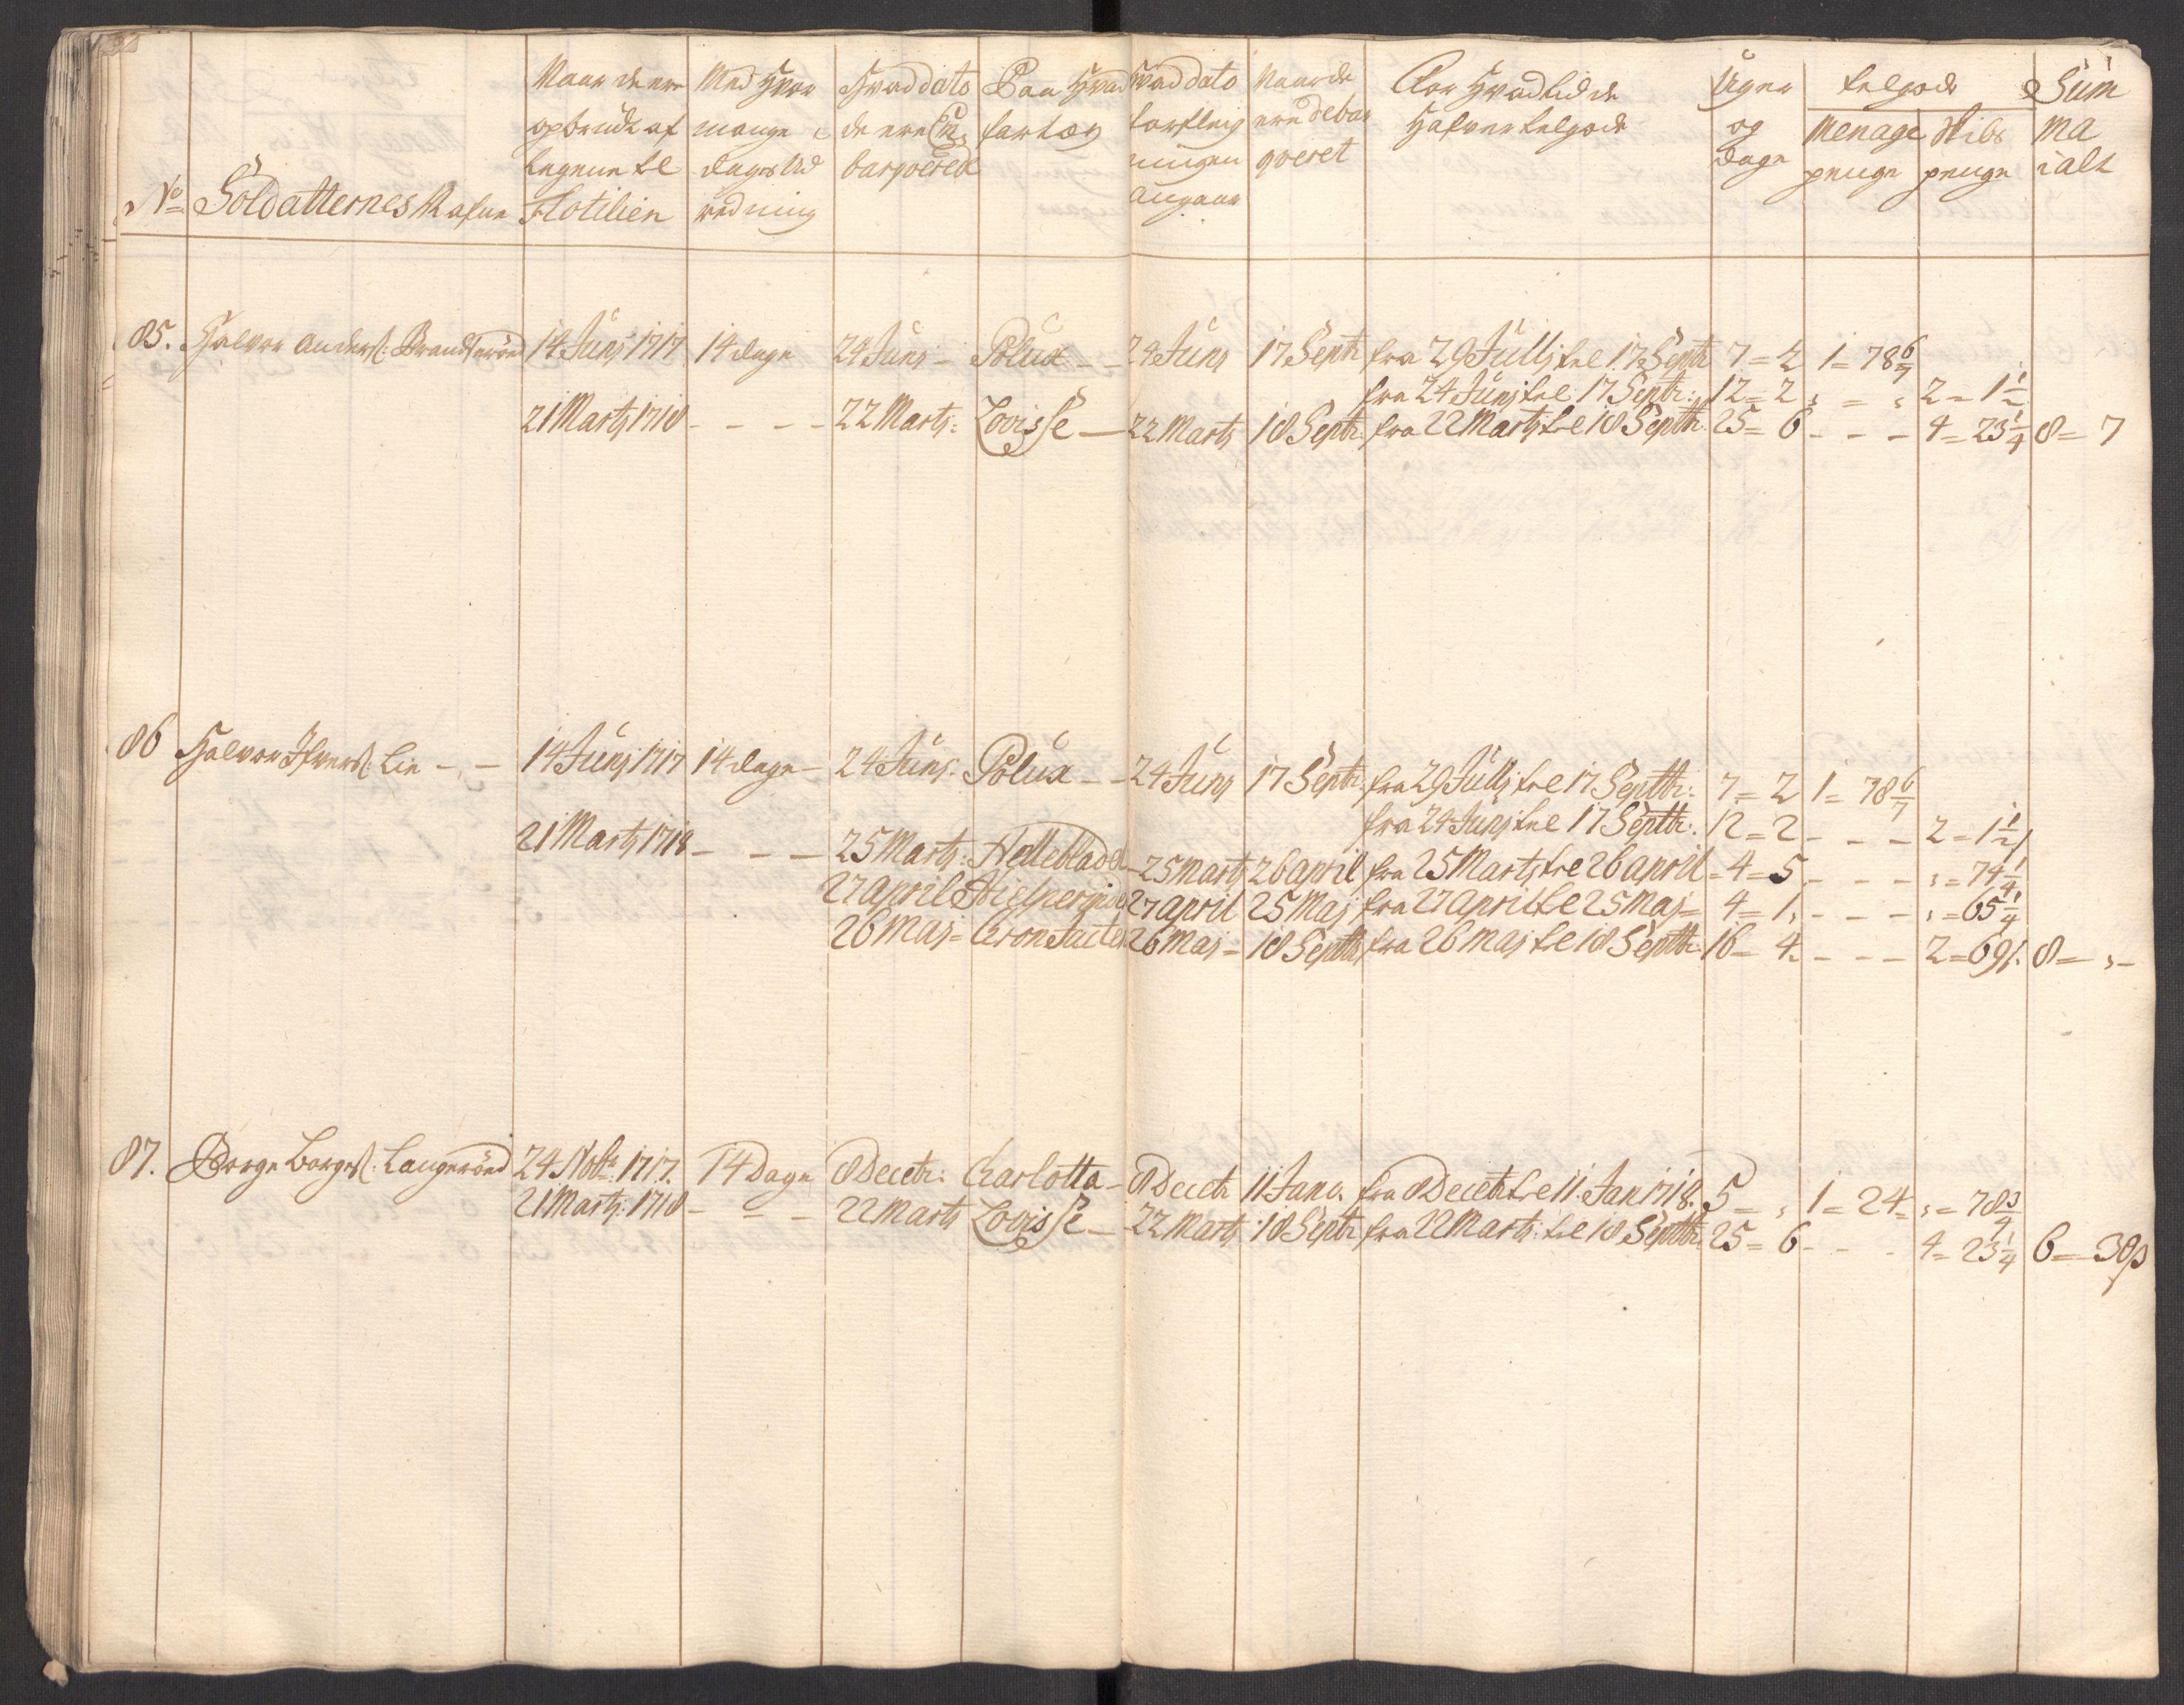 No Soldatternes Nafne
Naar de ere opbrudt af legerne til Flotilien
Med hvor mange dages Udredning
Hvad dato de ere Embarqveret
Paa Hvad fartøy
Hvad dato forfleigningen angaar
Naar de ere debarqveret
For Hvad tid de Hafver tilgode
Uger og dage
tilgode
Menage penge
Skibs penge
Summa ialt
85. Halvor Anders: 14 Junj 1717 14 dage 24 Junj - Polux - - 24 Junj 17 Septr fra 29 Jullj til 17 Septr 7 = 2 1 = 78 6/7
fra 24 Junj til 17 Septr: 12 = 2 , = , 2 = 1 1/2
21 Martj 1718 - - - - 22 Martj: Lovisse - 22 Martj 18 Septr. fra 22 Martj til 18 Septtr. 25 = 6 - - - 4 = 23 1/4 8 = 7
86 Halvor Ifvers: Lie - , - 14 Junj 1717 14 dage - 24 Junj. Polux - - 24 Junj 17 Septr. fra 29 Jullj til 17 Septtr: 7 = 2 1 = 78 6/7
fra 24 Junj til 17 Septtr. 12 = 2 - - - 2 = 1 1/2
21 Martj 1718 - - - 25 Martj: Nelleblader - 25 Martj 26 april fra 25 Martj til 26 april - 4 = 5 - - - , = 74 1/4
27 april 27 april 25 Maj fra 27 april til 25 Maj = 4 = 1, - - - , = 65 1/4
26 Maj = 26 Maj = 18 Septtr fra 26 Maj til 18 Septtr: 16 = 4 - - - 2 = 69 8 = , -
87. Borge Borges: Langerød 24 Novbr: 1717. 14 Dage 8 Decebr: Charlotta - 8 Decebr 11 Janv. fra 8 Decebr til 11. Jan 1718. 5 = , 1 = 24 = , = 78 3/4
21 Martj: 1718 - = - 22 Martj Lovisse - 22 Martj 18 Septr fra 22 Martj: til 18 Septtr 25 = 6 - - - 4 = 23 1/4 6 = 30 β